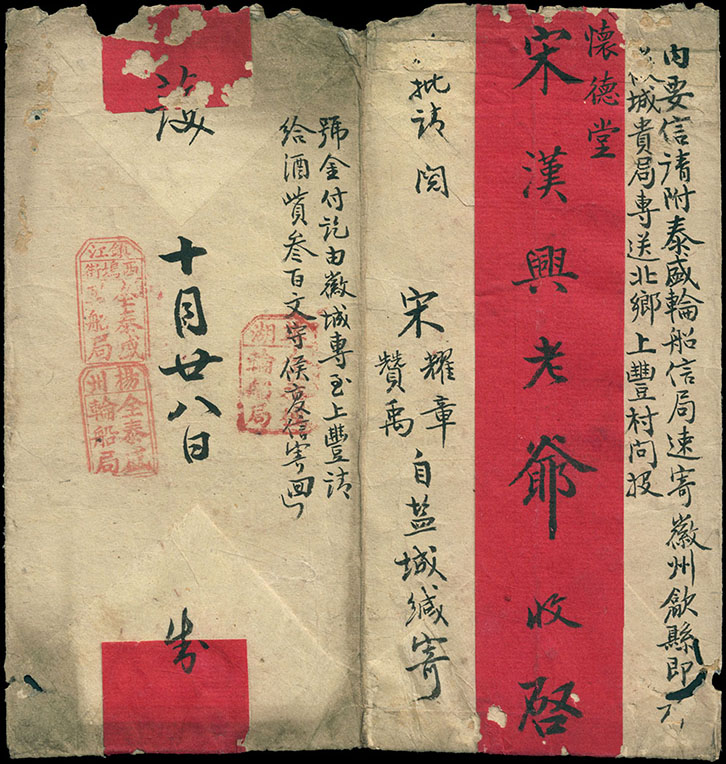 內要信請附泰盛輪船信局速寄徽州歙縣即
城貴局專送北鄉上豐村問投
懷德堂
宋漢興老爺收啓
批請閱
宋耀章
贊禹
自盐城缄寄
號金付訖由徽城專至上豐請
給酒貲叁百文守候
信寄回
十月廿八日
鎮江
全泰盛
船局
揚州全泰盛
輪船局
湖
輪船局